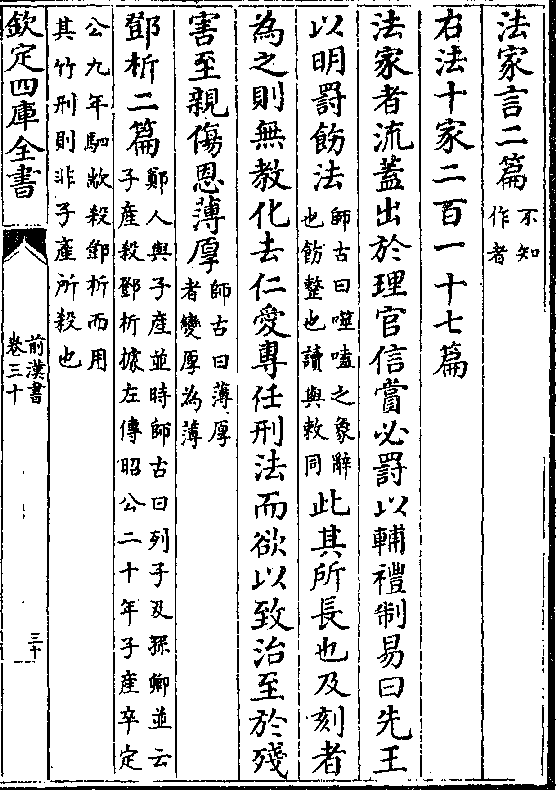 法家言二篇不知作者
右法十家二百一十七篇
法家者流蓋出於理官信賞必罰以輔禮制易曰先王
以明罰飭法師古曰噬嗑之象辭也飭整也讀與敕同此其所長也及刻者
為之則無教化去仁愛專任刑法而欲以致治至於殘
害至親傷恩薄厚師古曰薄厚者變厚為薄
鄧析二篇鄭人與子產並時師古曰列子及孫卿並云子產殺鄧析據左傳昭公二十年子產卒定
公九年駟歂殺鄧析而用其竹刑則非子產所殺也
欽定四庫全書
前漢書
卷三十
三十